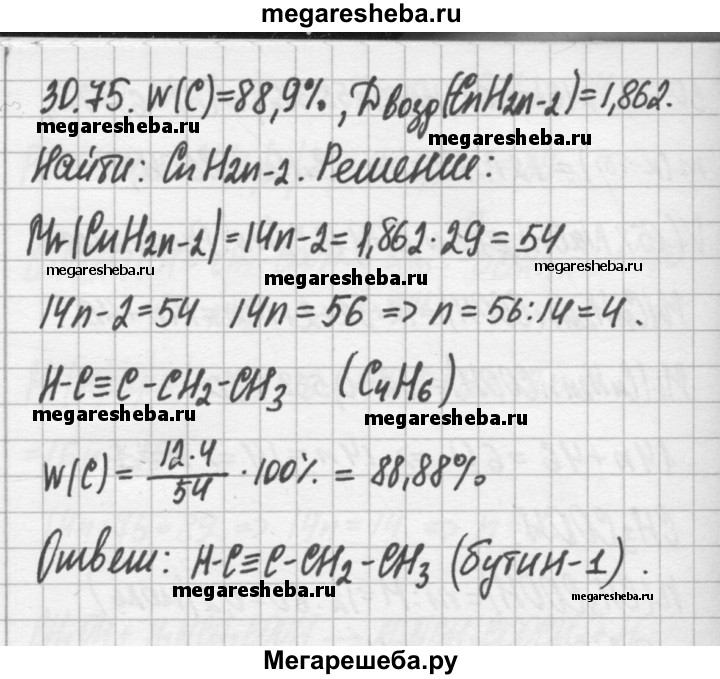 megaresheba.ru
30.75. W(C)=88,9%, Dвозд(CnH2n-2)=1,862.
megaresheba.ru megaresheba.ru
Найти: CnH2n-2. Решение:
Mr(CnH2n-2)=14n-2=1,862·29=54
megaresheba.ru megaresheba.ru megaresheba.ru
14n-2=54 14n=56 => n=56:14=4.
H-C≡C-CH2-CH3 (C4H6)
megaresheba.ru megaresheba.ru
W(C) = 12·4/54 · 100% = 88,88%
Ответ: H-C≡C-CH2-CH3 (бутин-1).
megaresheba.ru megaresheba.ru
Мегарешеба.ру